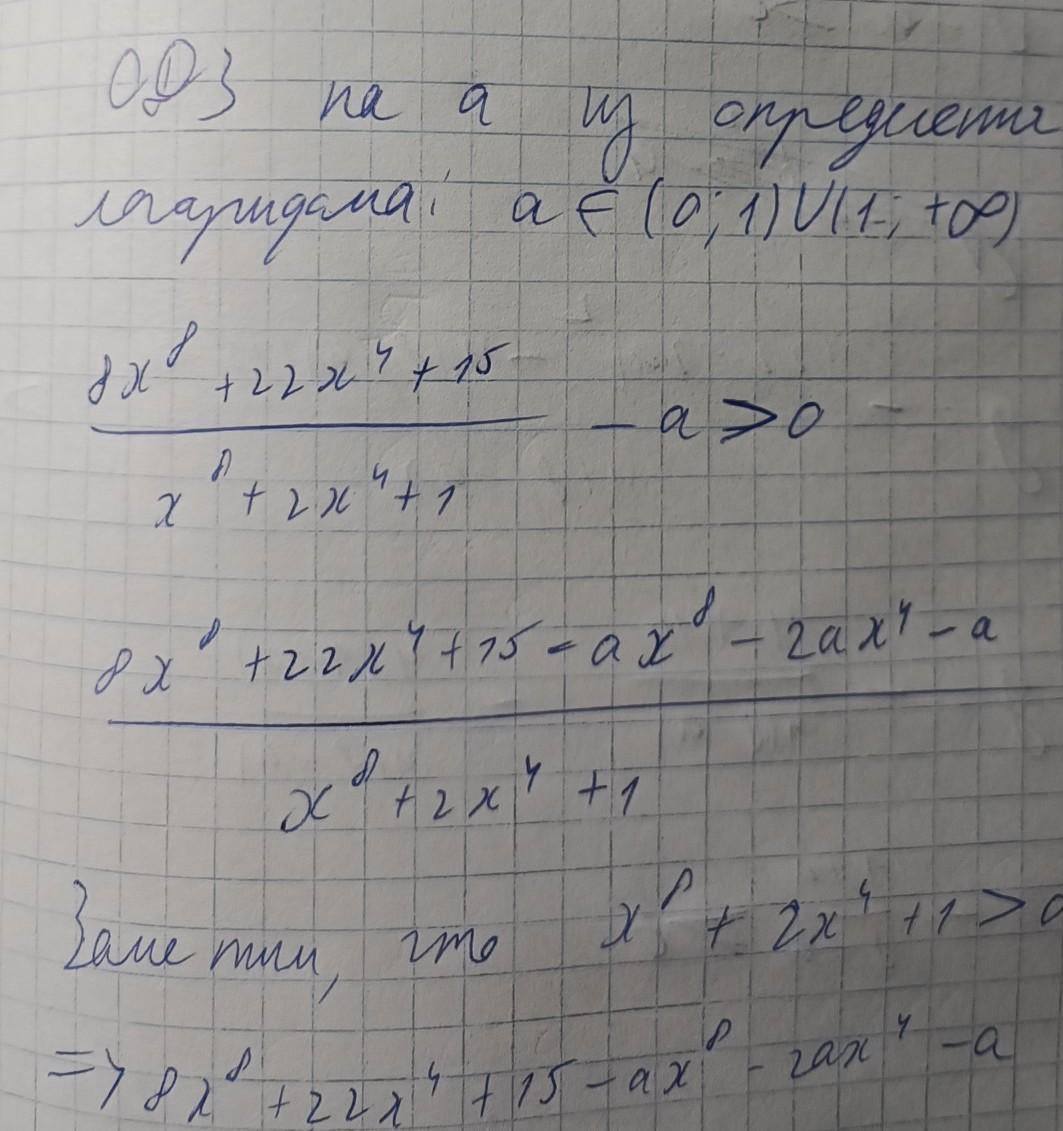 ОДЗ на a из определения
логарифма: a ∈ (0; 1) ∪ (1; +∞)
8x⁸ + 22x⁴ + 15
x⁸ + 2x⁴ + 1
− a ⩾ 0
8x⁸ + 22x⁴ + 15 − ax⁸ − 2ax⁴ − a
x⁸ + 2x⁴ + 1
Заметим, что x⁸ + 2x⁴ + 1 > 0
=> 8x⁸ + 22x⁴ + 15 − ax⁸ − 2ax⁴ − a